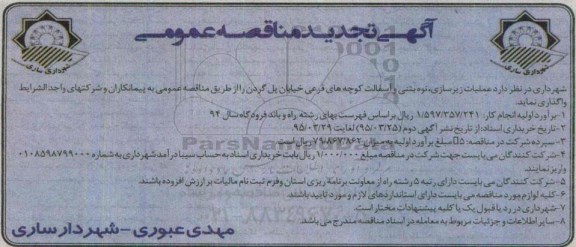 آگهی تجدید مناقصه عمومی
شهرداری ساری
شهرداری ساری
شهرداری در نظر دارد عملیات زیرسازی، لوله بتنی و آسفالت کوچه های فرعی خیابان پل گردن را از طریق مناقصه عمومی به پیمانکاران و شرکتهای واجد الشرایط
واگذاری نماید.
۱- برآورد اولیه انجام کار: ۱/۵۹۷/۳۵۷/۲۴۱ ریال بر اساس فهرست بهای رشته راه و باند فرودگاه سال ۹۴
۲- تاریخ خریداری اسناد: از تاریخ نشر آگهی دوم (۹۵/۰۳/۲۵) لغایت ۹۵/۰۳/۲۹
۳- سپرده شرکت در مناقصه: ۵٪ مبلغ برآورد اولیه به میزان ۷۹/۸۶۷/۸۶۲ ریال است
۴- شرکت کنندگان می بایست جهت شرکت در مناقصه مبلغ ۱/۰۰۰/۰۰۰ ریال بابت خریداری اسناد به حساب سیبا درآمد شهرداری به شماره ۰۱۰۸۵۹۸۷۹۹۰۰۰
واریز نمایند.
۵- شرکت کنندگان می بایست دارای رتبه ۵ رشته راه از معاونت برنامه ریزی استان و فرم ثبت نام مالیات بر ارزش افزوده باشند.
۶- کلیه لوازم مورد مناقصه می بایست دارای استانداردهای لازم و مورد تایید باشند.
۷- شهرداری در رد یا قبول یک یا کلیه پیشنهادات مختار است
۸- سایر اطلاعات و جزئیات مربوط به معامله در اسناد مناقصه مندرج می باشد.
مهدی عبوری - شهردار ساری